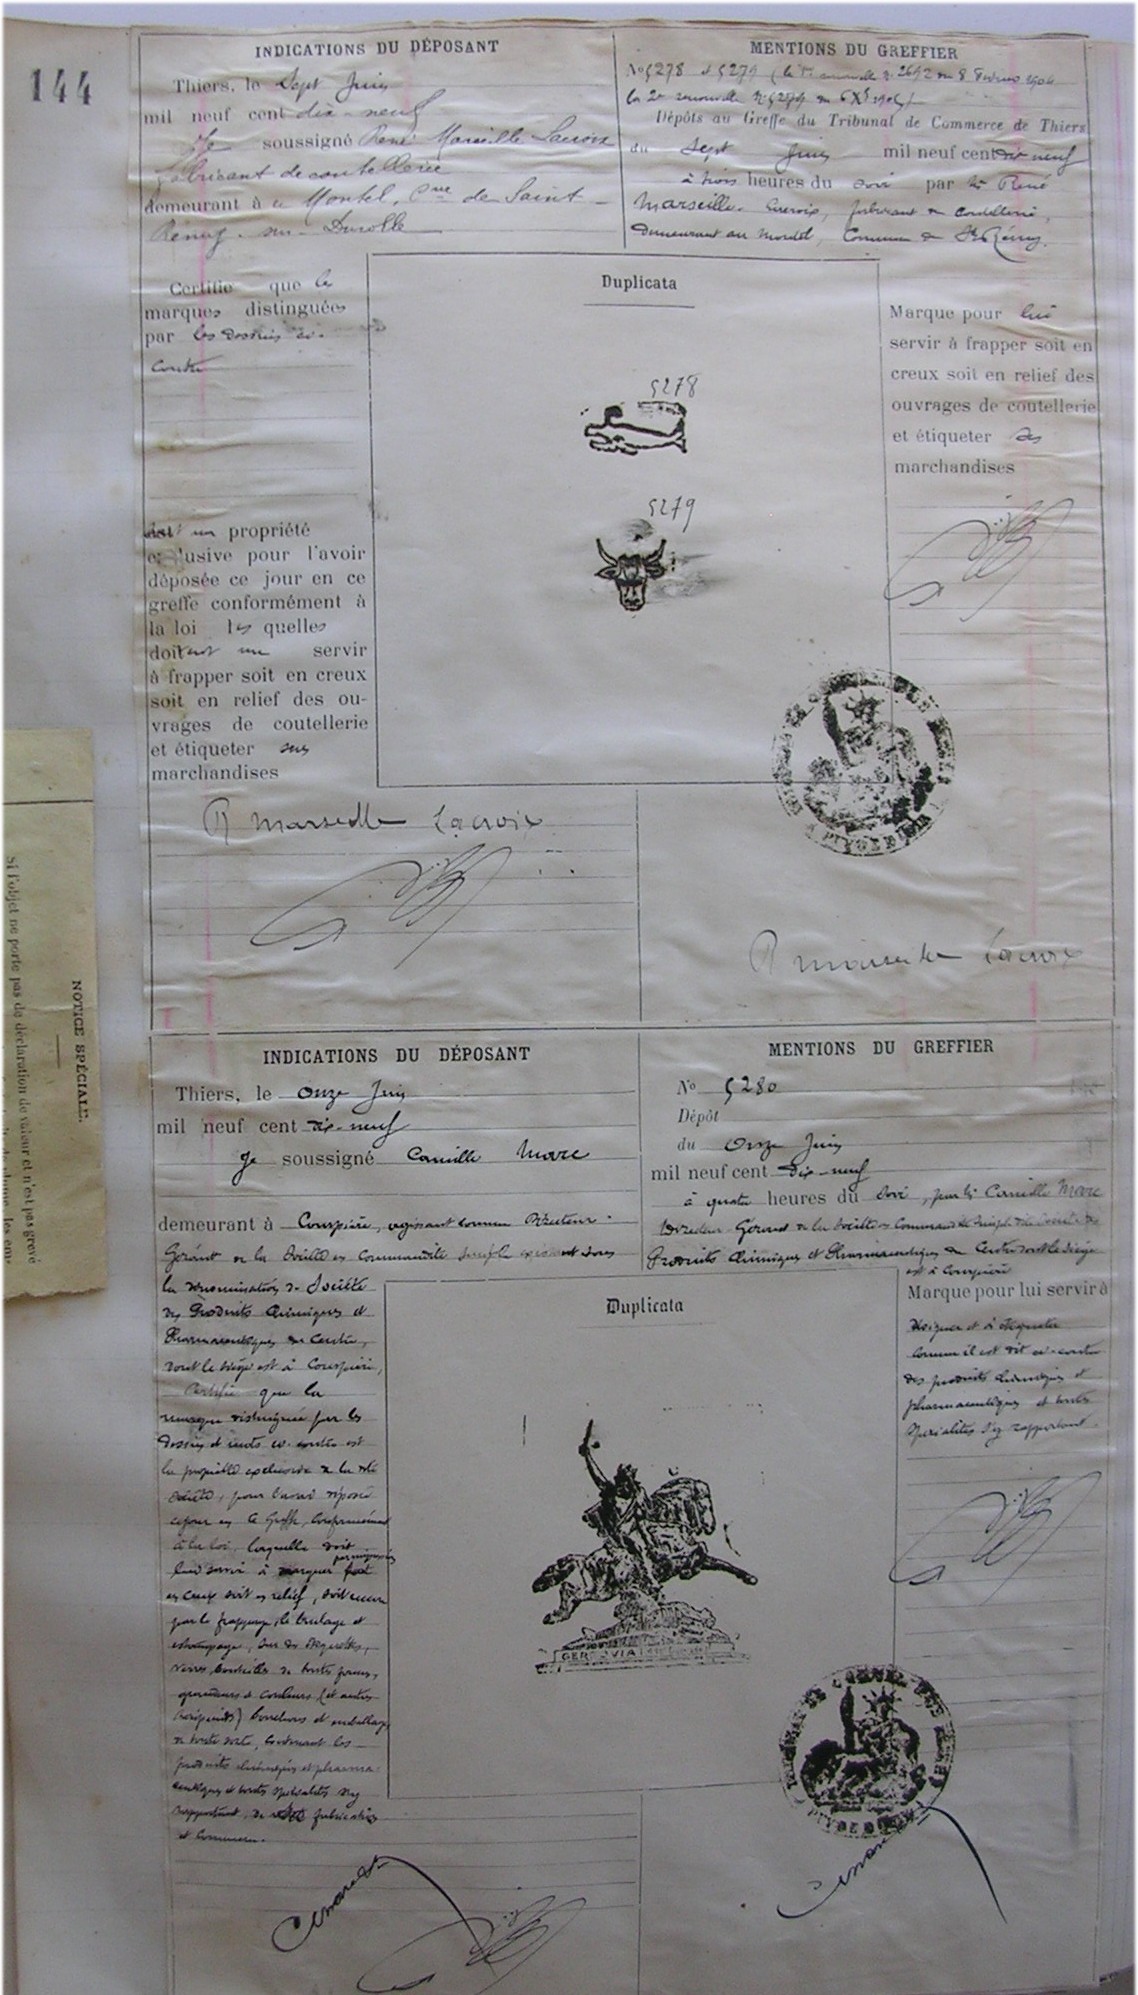 144
INDICATIONS DU DÉPOSANT
Thiers, le Sept Juin
mil neuf cent dix-neuf
Je soussigné René Marseille Lacroix
fabricant de coutellerie
demeurant à Montel, Cne de Saint-
Rémy-sur-Durolle
MENTIONS DU GREFFIER
Nos 5278 et 5279 (le 1er renouvelle n° 2692 du 8 Février 1904
le 2e renouvelle N° 5279 du
Dépôts au Greffe du Tribunal de Commerce de Thiers
du Sept Juin mil neuf cent dix neuf
à trois heures du soir par Mr René
Marseille-Lacroix, fabricant de coutellerie,
demeurant au Montel, Commune de St Rémy.
Certifie que les
marques distinguées
par les dessins ci-
contre
propriété
exclusive pour l'avoir
déposée ce jour en ce
greffe conformément à
la loi lesquelles
doivent servir
à frapper soit en creux
soit en relief des ou-
vrages de coutellerie
et étiqueter ses
marchandises
Duplicata
5278
5279
Marque pour lui
servir à frapper soit en
creux soit en relief des
ouvrages de coutellerie
et étiqueter ses
marchandises
R Marseille Lacroix
R Marseille Lacroix
NOTICE SPÉCIALE.
Si l'objet ne porte pas de déclaration de valeur et n'est pas grevé
INDICATIONS DU DÉPOSANT
Thiers, le onze Juin
mil neuf cent dix-neuf
Je soussigné Camille Marc
demeurant à Courpière, agissant comme Directeur-
Gérant de la Société en Commandite simple existant sous
la dénomination de Société
des Produits Chimiques et
Pharmaceutiques du Centre,
dont le siège est à Courpière,
Certifie que la
marque distinguée par les
dessins et mots ci-contre est
la propriété exclusive de la dite
Société, pour l'avoir déposé
ce jour en ce Greffe, conformément
à la loi, laquelle doit
lui servir à marquer soit
en creux soit en relief, soit encore
par le frappage, le brulage et
estampage, sur des étiquettes,
verres, bouteilles de toutes formes,
grandeurs et couleurs (et autres
récipients) bouchons et emballages
de toute sorte, contenant les
produits chimiques et pharma-
ceutiques et toutes spécialités s'y
rapportant, de fabrication
et commerce.
MENTIONS DU GREFFIER
No 5280
Dépôt
du Onze Juin
mil neuf cent dix-neuf
à quatre heures du soir, par Mr Camille Marc
Directeur-Gérant de la Société en Commandite simple dite Société des
Produits Chimiques et Pharmaceutiques du Centre dont le siège
est à Courpière
Duplicata
GERGOVIA
Marque pour lui servir à
désigner et à étiqueter
comme il est dit ci-contre
des produits chimiques et
pharmaceutiques et toutes
spécialités s'y rapportant.
CMarc
CMarc